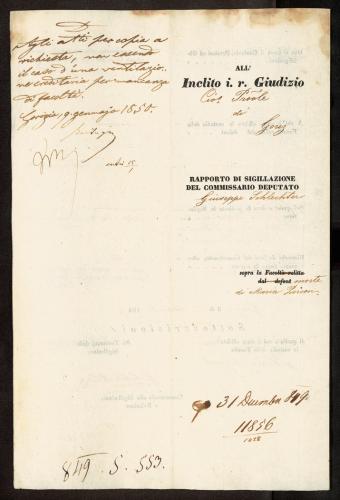 D.
Agli atti per copia a
richiesta, non essendo
il caso d'una ventilazio-
ne ereditaria per mancanza
di facoltà.
Gorizia, 9 gennajo 1850.
ALL'
Inclito i. r. Giudizio
Civ. Prov.le
di
Goriz
RAPPORTO DI SIGILLAZIONE
DEL COMMISSARIO DEPUTATO
Giuseppe Schlechter
sopra la Facoltà relitta
dal defont morte
di Maria
31 Decembre 849
11856
1028
849. S. 553.